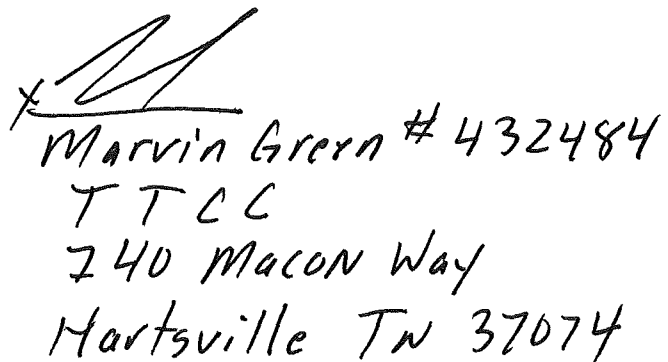 X
Marvin Green # 432484
TTCC
740 Macon Way
Hartsville TN 37074